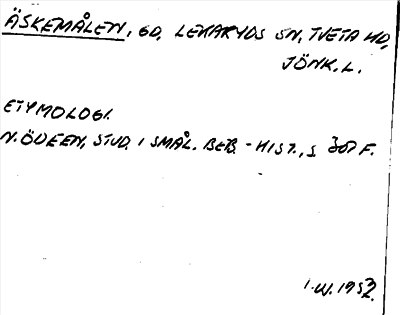 ÄSKEMÅLEN, GD, LEKARYDS SN, TVETA HD,
JÖNK. L.
ETYMOLOGI.
N. ÖDEEN, STUD. I SMÅL. BEB.-HIST., S 307 F.
I.W. 1952.